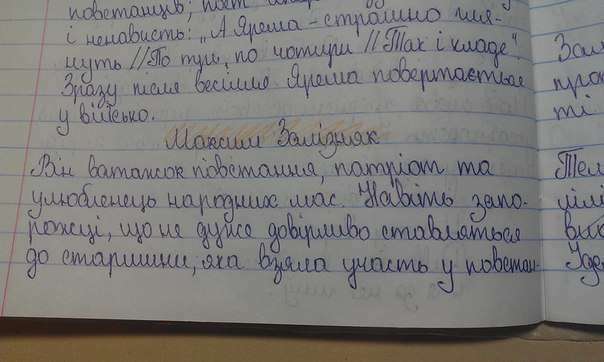 повстанців; поет
і ненависть: „А Ярема - страшно гля-
нуть // По три, по чотири // Так і кладе".
Зразу після весілля Ярема повертається
у військо.
Максим Залізняк
Він ватажок повстання, патріот та
улюбленець народних мас. Навіть запо-
рожці, що не дуже довірливо ставляться
до старшини, яка взяла участь у повстан-
ті